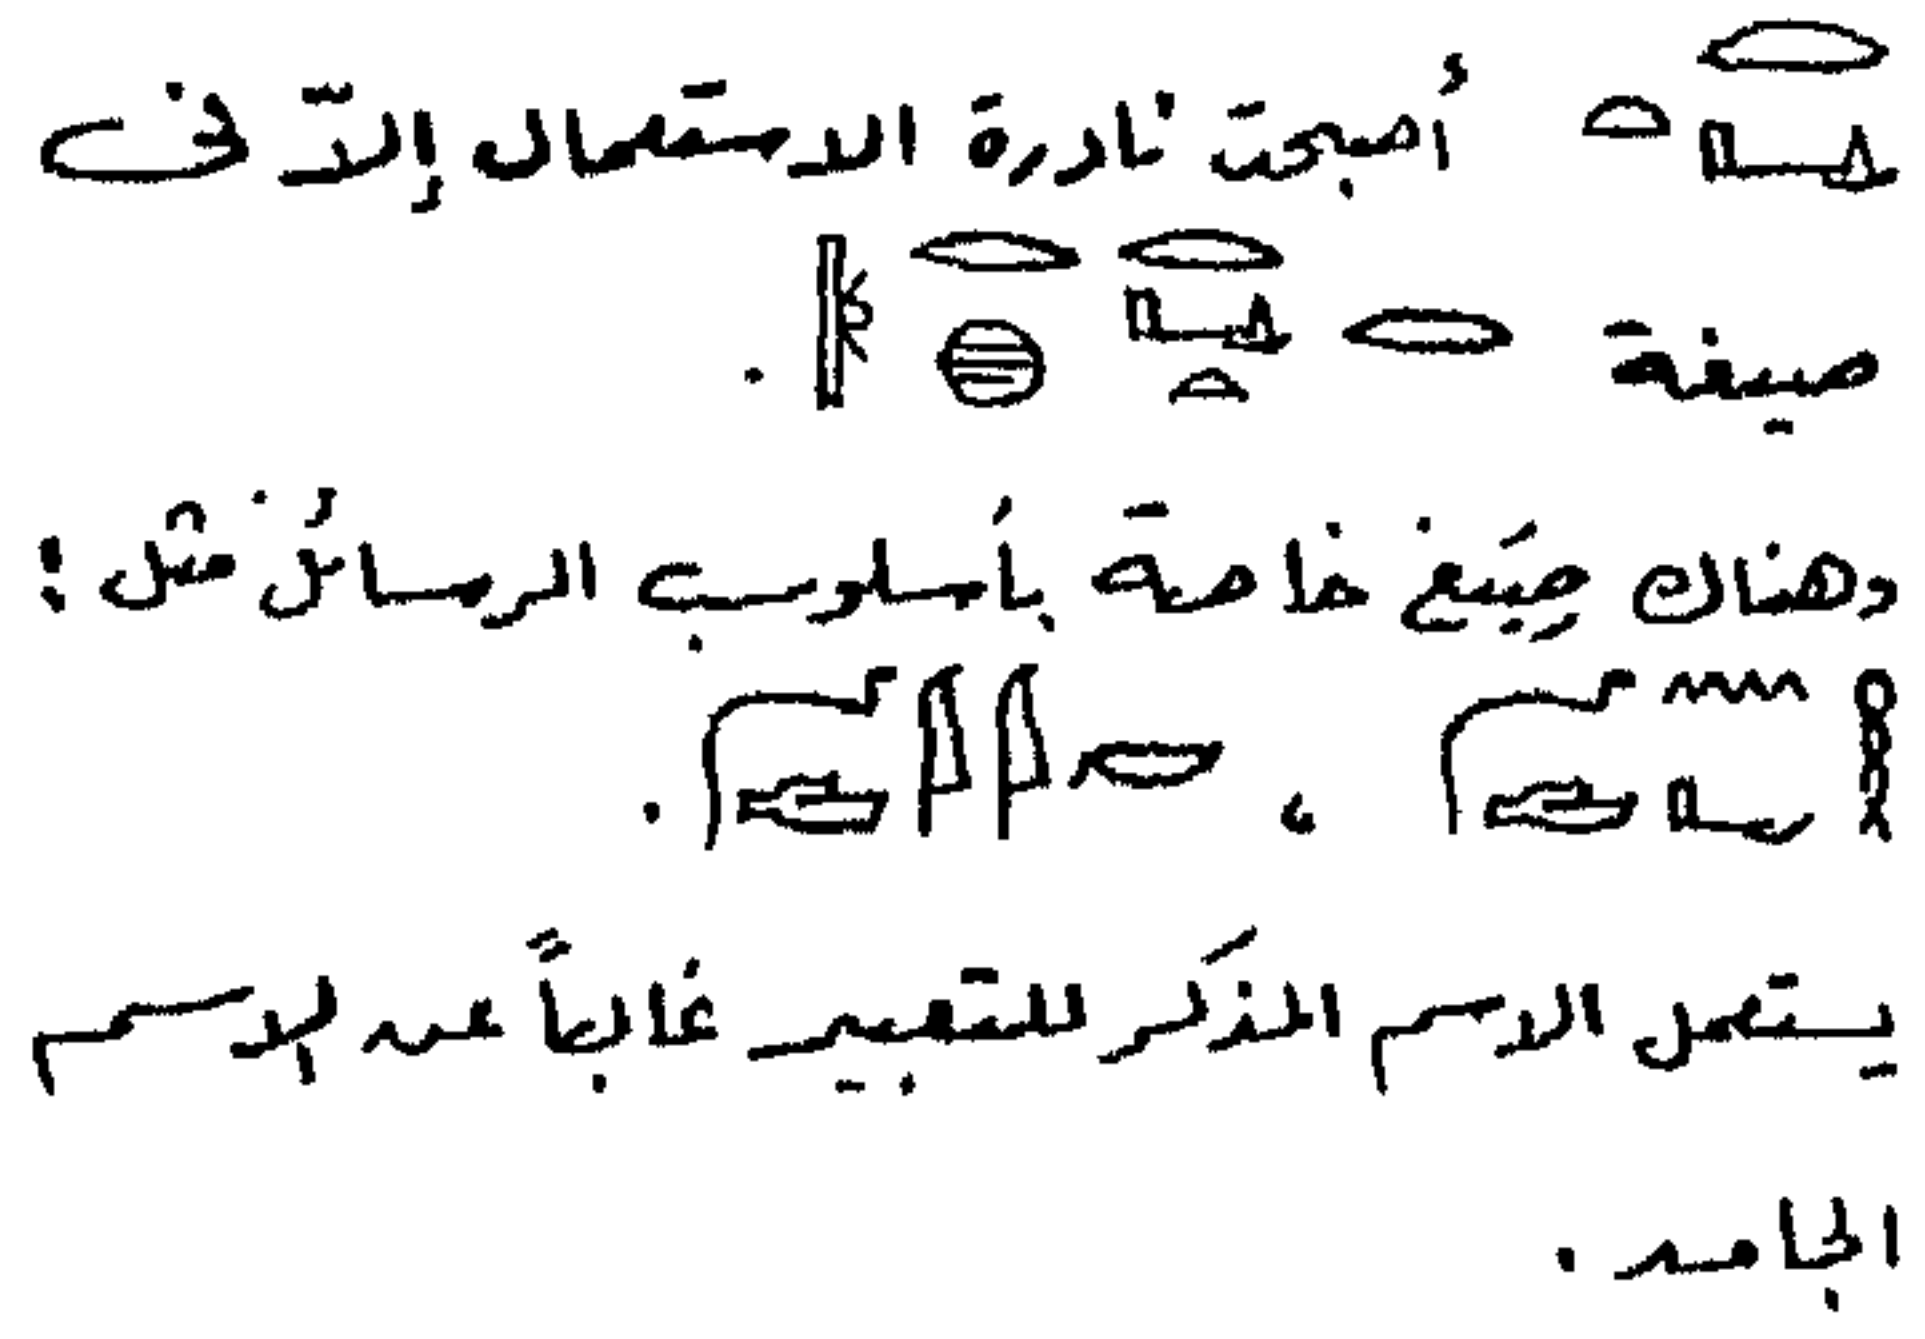 𓂋𓂞𓏏 أصبحت نادرة الاستعمال إلاّ فى
صيغة 𓂋 𓂋𓂞𓏏 𓂋𓐍 𓇋 .
وهناك صِيَغ خاصة بأسلوب الرسائل مثل :
𓎛𓈖𓂝𓆓𓂧 ، 𓂋𓇋𓇋𓆓𓂧 .
يستعمل الاسم المذكَر للتعبير غالباً عن الاسم
الجامد .